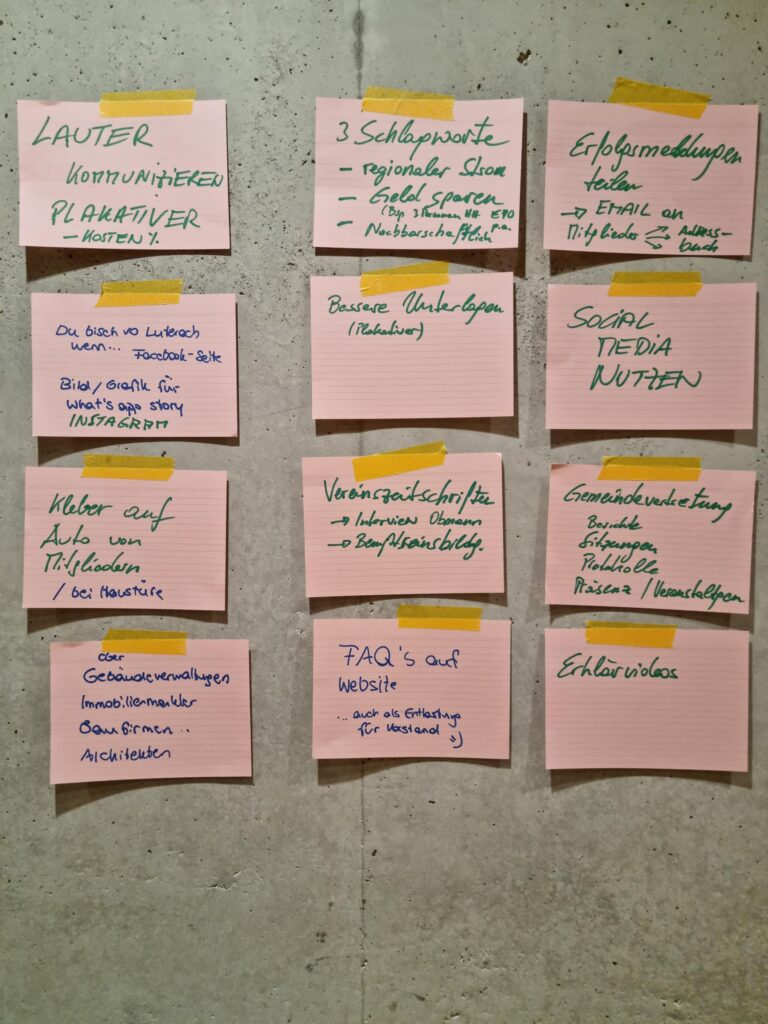 LAUTER
KOMMUNIZIEREN
PLAKATIVER
- KOSTEN %
3 Schlagworte
- regionaler Strom
- Geld sparen
(Bsp. 3 Personen HH €90 p.a.
- Nachbarschaftlich
Erfolgsmeldungen
teilen
→ EMAIL an
Mitglieder → Adress-
buch
Du bisch vo Luterach
wenn... Facebook-Seite
Bild/Grafik für
What's app story
INSTAGRAM
Bessere Unterlagen
(Plakativer)
SOCIAL
MEDIA
NUTZEN
Kleber auf
Auto von
Mitgliedern
/ bei Haustüre
Vereinszeitschriften
→ Interview Obmann
→ Bewußtseinsbildg.
Gemeindevertretung
Berichte
Sitzungen
Protokolle
Präsenz / Veranstaltgen
über
Gebäudeverwaltungen
Immobilienmakler
Baufirmen ..
Architekten
FAQ's auf
Website
... auch als Entlastung
für Vorstand :)
Erklärvideos